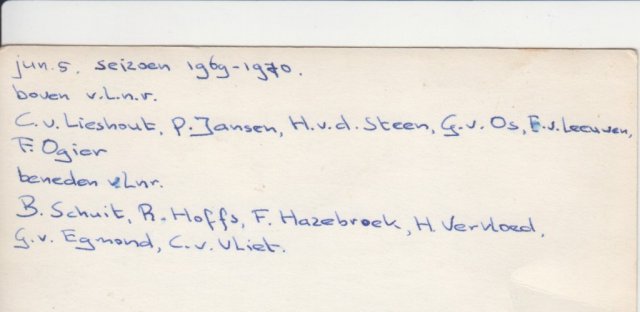 jun. 5. seizoen 1969-1970.
boven v.l.n.r.
C. v. Lieshout, P. Jansen, H. v. d. Steen, G. v. Os, F. v. Leeuwen,
F. Ogier
beneden v.l.n.r.
B. Schuit, R. Hoffs, F. Hazebroek, H. Vervloed,
G. v. Egmond, C. v. Vliet.